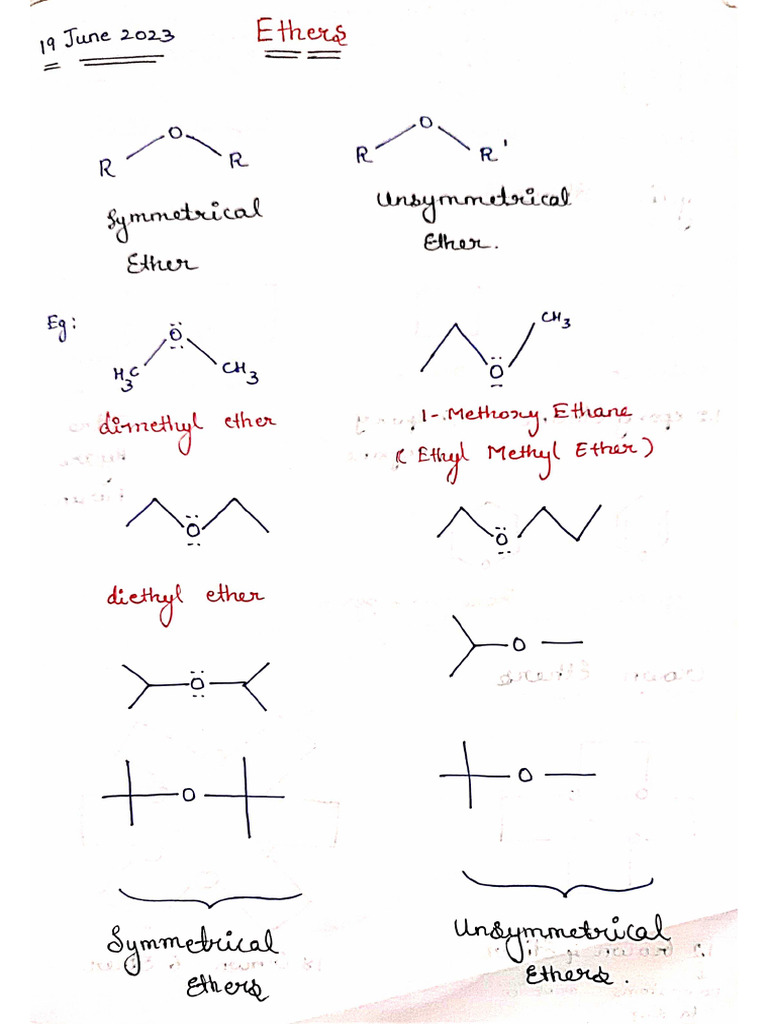 19 June 2023
Ethers
R O R
R O R'
Symmetrical
Ether
Unsymmetrical
Ether.
Eg:
H3C O CH3
O CH3
dimethyl ether
1-Methoxy Ethane
(Ethyl Methyl Ether)
O
O
diethyl ether
O
O
O
O
Symmetrical
Ethers
Unsymmetrical
Ethers.